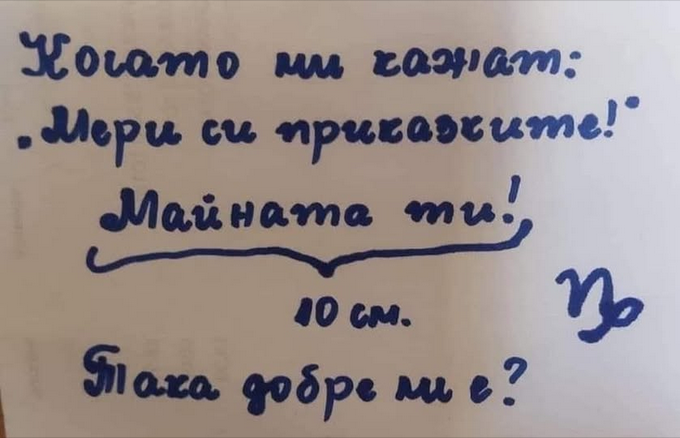 Когато ми кажат:
„Мери си приказките!"
Майната ти!
10 см.
Така добре ли е?